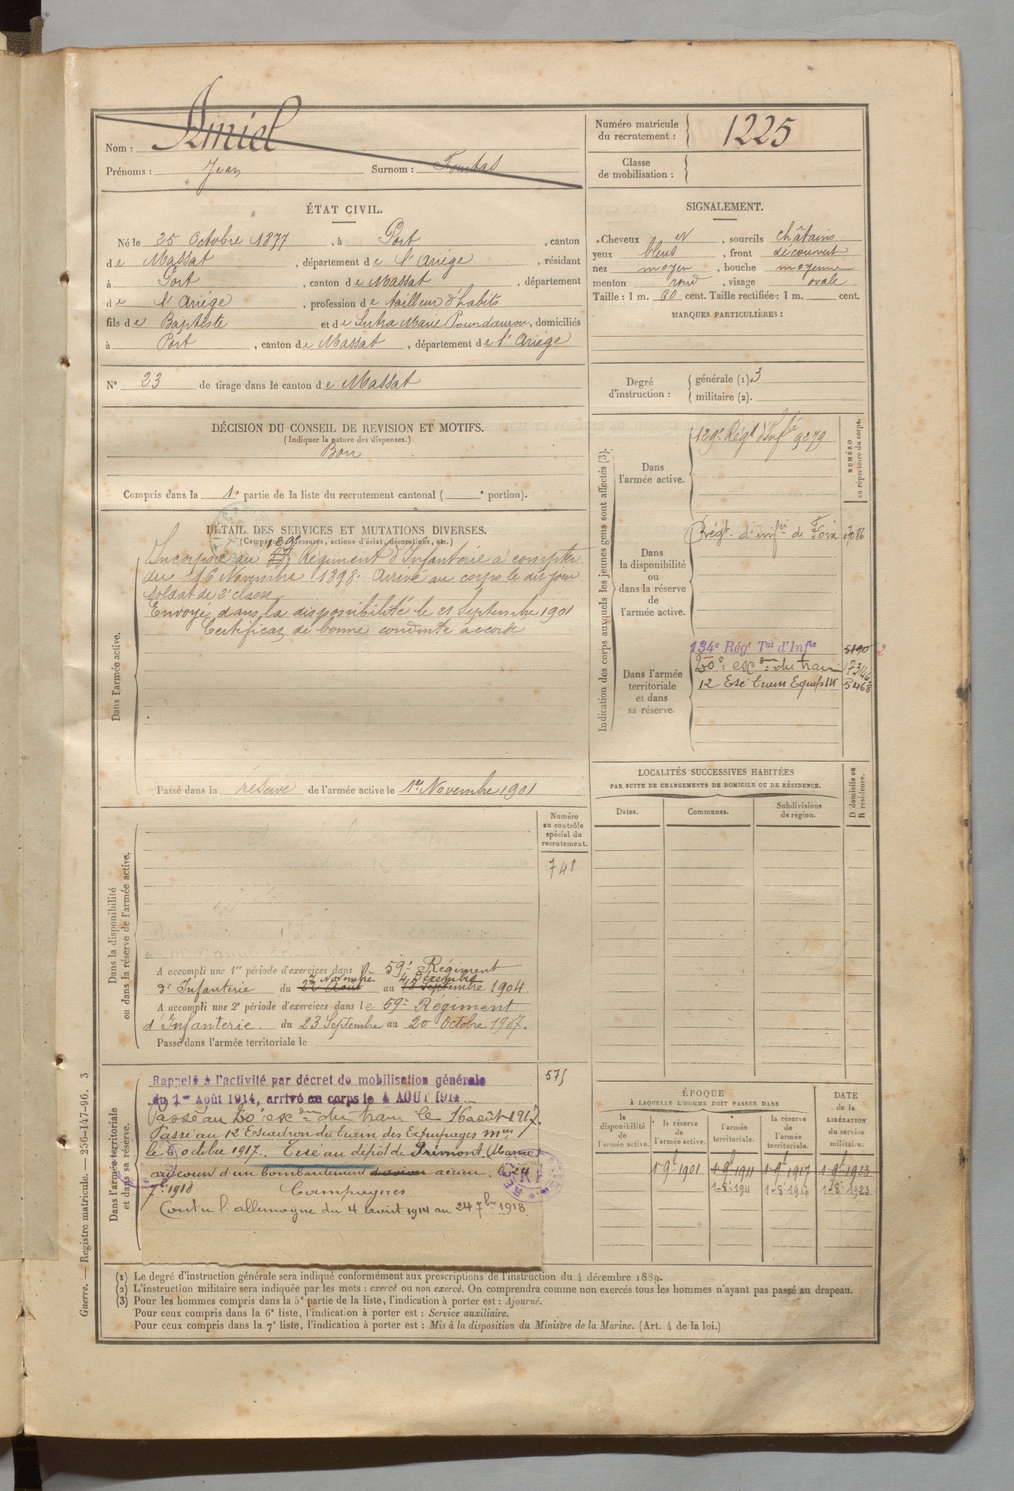 Nom : Amiel
Prénoms : Jean Surnom :
Numéro matricule du recrutement : 1225
Classe de mobilisation :
ÉTAT CIVIL.
Né le 25 Octobre 1877, à Port, canton
de Massat, département de l'Ariège, résidant
à Port, canton de Massat, département
de l'Ariège, profession de tailleur d'habits
fils de Baptiste et de Marie, domiciliés
à Port, canton de Massat, département de l'Ariège
N° 23 de tirage dans le canton de Massat
SIGNALEMENT.
Cheveux et, sourcils châtains
yeux bleus, front découvert
nez moyen, bouche moyenne
menton rond, visage ovale
Taille : 1 m. 60 cent. Taille rectifiée : 1 m. cent.
MARQUES PARTICULIÈRES :
Degré d'instruction : générale (1) 3
militaire (2).
DÉCISION DU CONSEIL DE REVISION ET MOTIFS.
(Indiquer la nature des dispenses.)
Bon
Compris dans la 1e partie de la liste du recrutement cantonal ( e portion).
DÉTAIL DES SERVICES ET MUTATIONS DIVERSES.
(Campagnes, blessures, actions d'éclat, décorations, etc.)
Dans l'armée active.
Incorporé au 129e Régiment d'Infanterie à compter
du 16 Novembre 1898. Arrivé au corps le dit jour
soldat de 2e classe
Envoyé dans la disponibilité le 21 Septembre 1901
Certificat de bonne conduite accordé
Passé dans la réserve de l'armée active le 1er Novembre 1901
Indication des corps auxquels les jeunes gens sont affectés (3).
NUMÉRO au répertoire du corps.
Dans l'armée active.
129e Régt d'Infie 9279
Dans la disponibilité ou dans la réserve de l'armée active.
Régt d'infie de Foix 7086
Dans l'armée territoriale et dans sa réserve.
134e Régt Tal d'Infie 5190
20e escon du train
12 Esc Train Equip M 5468
LOCALITÉS SUCCESSIVES HABITÉES
PAR SUITE DE CHANGEMENTS DE DOMICILE OU DE RÉSIDENCE.
Dates. Communes. Subdivisions de région. D domicile ou R résidence.
Dans la disponibilité ou dans la réserve de l'armée active.
Numéro au contrôle spécial du recrutement.
748
A accompli une 1re période d'exercices dans le 59e Régiment
d'Infanterie du 22 Août 7 Novembre au 18 Septembre 4 Décembre 1904
A accompli une 2e période d'exercices dans le 59e Régiment
d'Infanterie. du 23 Septembre au 20 Octobre 1907.
Passé dans l'armée territoriale le
Dans l'armée territoriale et dans sa réserve.
575
Rappelé à l'activité par décret de mobilisation générale
du 1er Août 1914, arrivé au corps le 4 AOUT 1914
Passé au 20e escon du train le 16 août 1917.
Passé au 12 Escadron du train des Equipages mres
le 6 octobre 1917. Tué au dépôt de Primont (Marne)
au cours d'un bombardement avion aérien. le 24
7bre 1918 Campagnes
Contre l'allemagne du 4 août 1914 au 24 7bre 1918.
ÉPOQUE
À LAQUELLE L'HOMME DOIT PASSER DANS
la disponibilité de l'armée active. la réserve de l'armée active. l'armée territoriale. la réserve de l'armée territoriale.
DATE de la LIBÉRATION du service militaire.
1 9bre 1901 1 9bre 1911 1 9bre 1917 1 9bre 1923
1-8-1911 1-8-1917 1-8-1923
(1) Le degré d'instruction générale sera indiqué conformément aux prescriptions de l'instruction du 4 décembre 1889.
(2) L'instruction militaire sera indiquée par les mots : exercé ou non exercé. On comprendra comme non exercés tous les hommes n'ayant pas passé au drapeau.
(3) Pour les hommes compris dans la 5e partie de la liste, l'indication à porter est : Ajourné.
Pour ceux compris dans la 6e liste, l'indication à porter est : Service auxiliaire.
Pour ceux compris dans la 7e liste, l'indication à porter est : Mis à la disposition du Ministre de la Marine. (Art. 4 de la loi.)
Guerre. — Registre matricule. — 256-147-96. 3